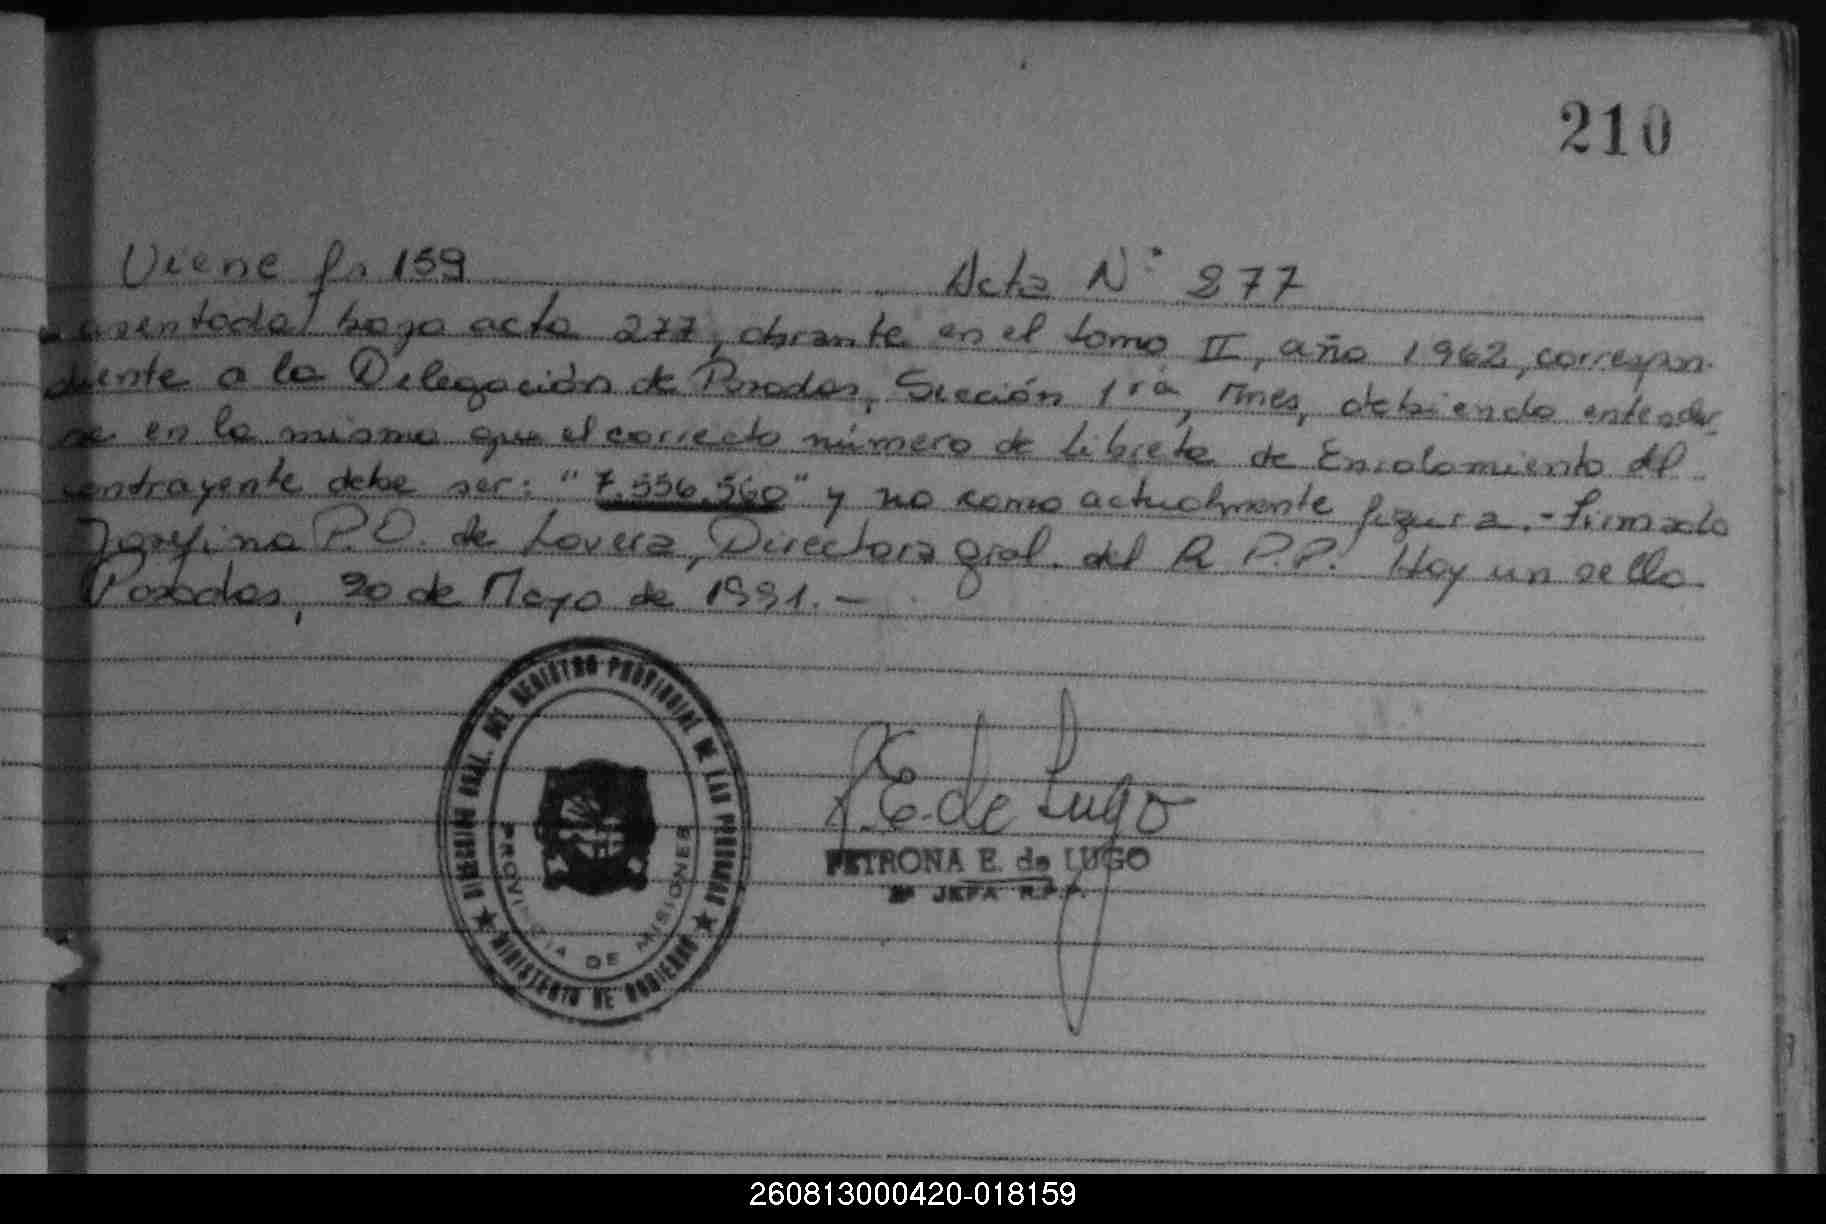 210
Viene fs 159 Acta N° 277
asentada bajo acta 277, obrante en el tomo II, año 1962, correspon-
diente a la Delegación de Posadas, Sección 1ra, Mnes, debiendo entender
se en la misma que el correcto número de Libreta de Enrolamiento del
contrayente debe ser: "7.556.560" y no como actualmente figura.- Firmado
Josefina P.O. de Lovera, Directora gral. del R.P.P. Hay un sello
Posadas, 20 de Mayo de 1991.-
DIRECCION GRAL. DEL REGISTRO PROVINCIAL DE LAS PERSONAS
PROVINCIA DE MISIONES
MINISTERIO DE GOBIERNO
P.E. de Lugo
PETRONA E. de LUGO
2ª JEFA R.P.P.
260813000420-018159